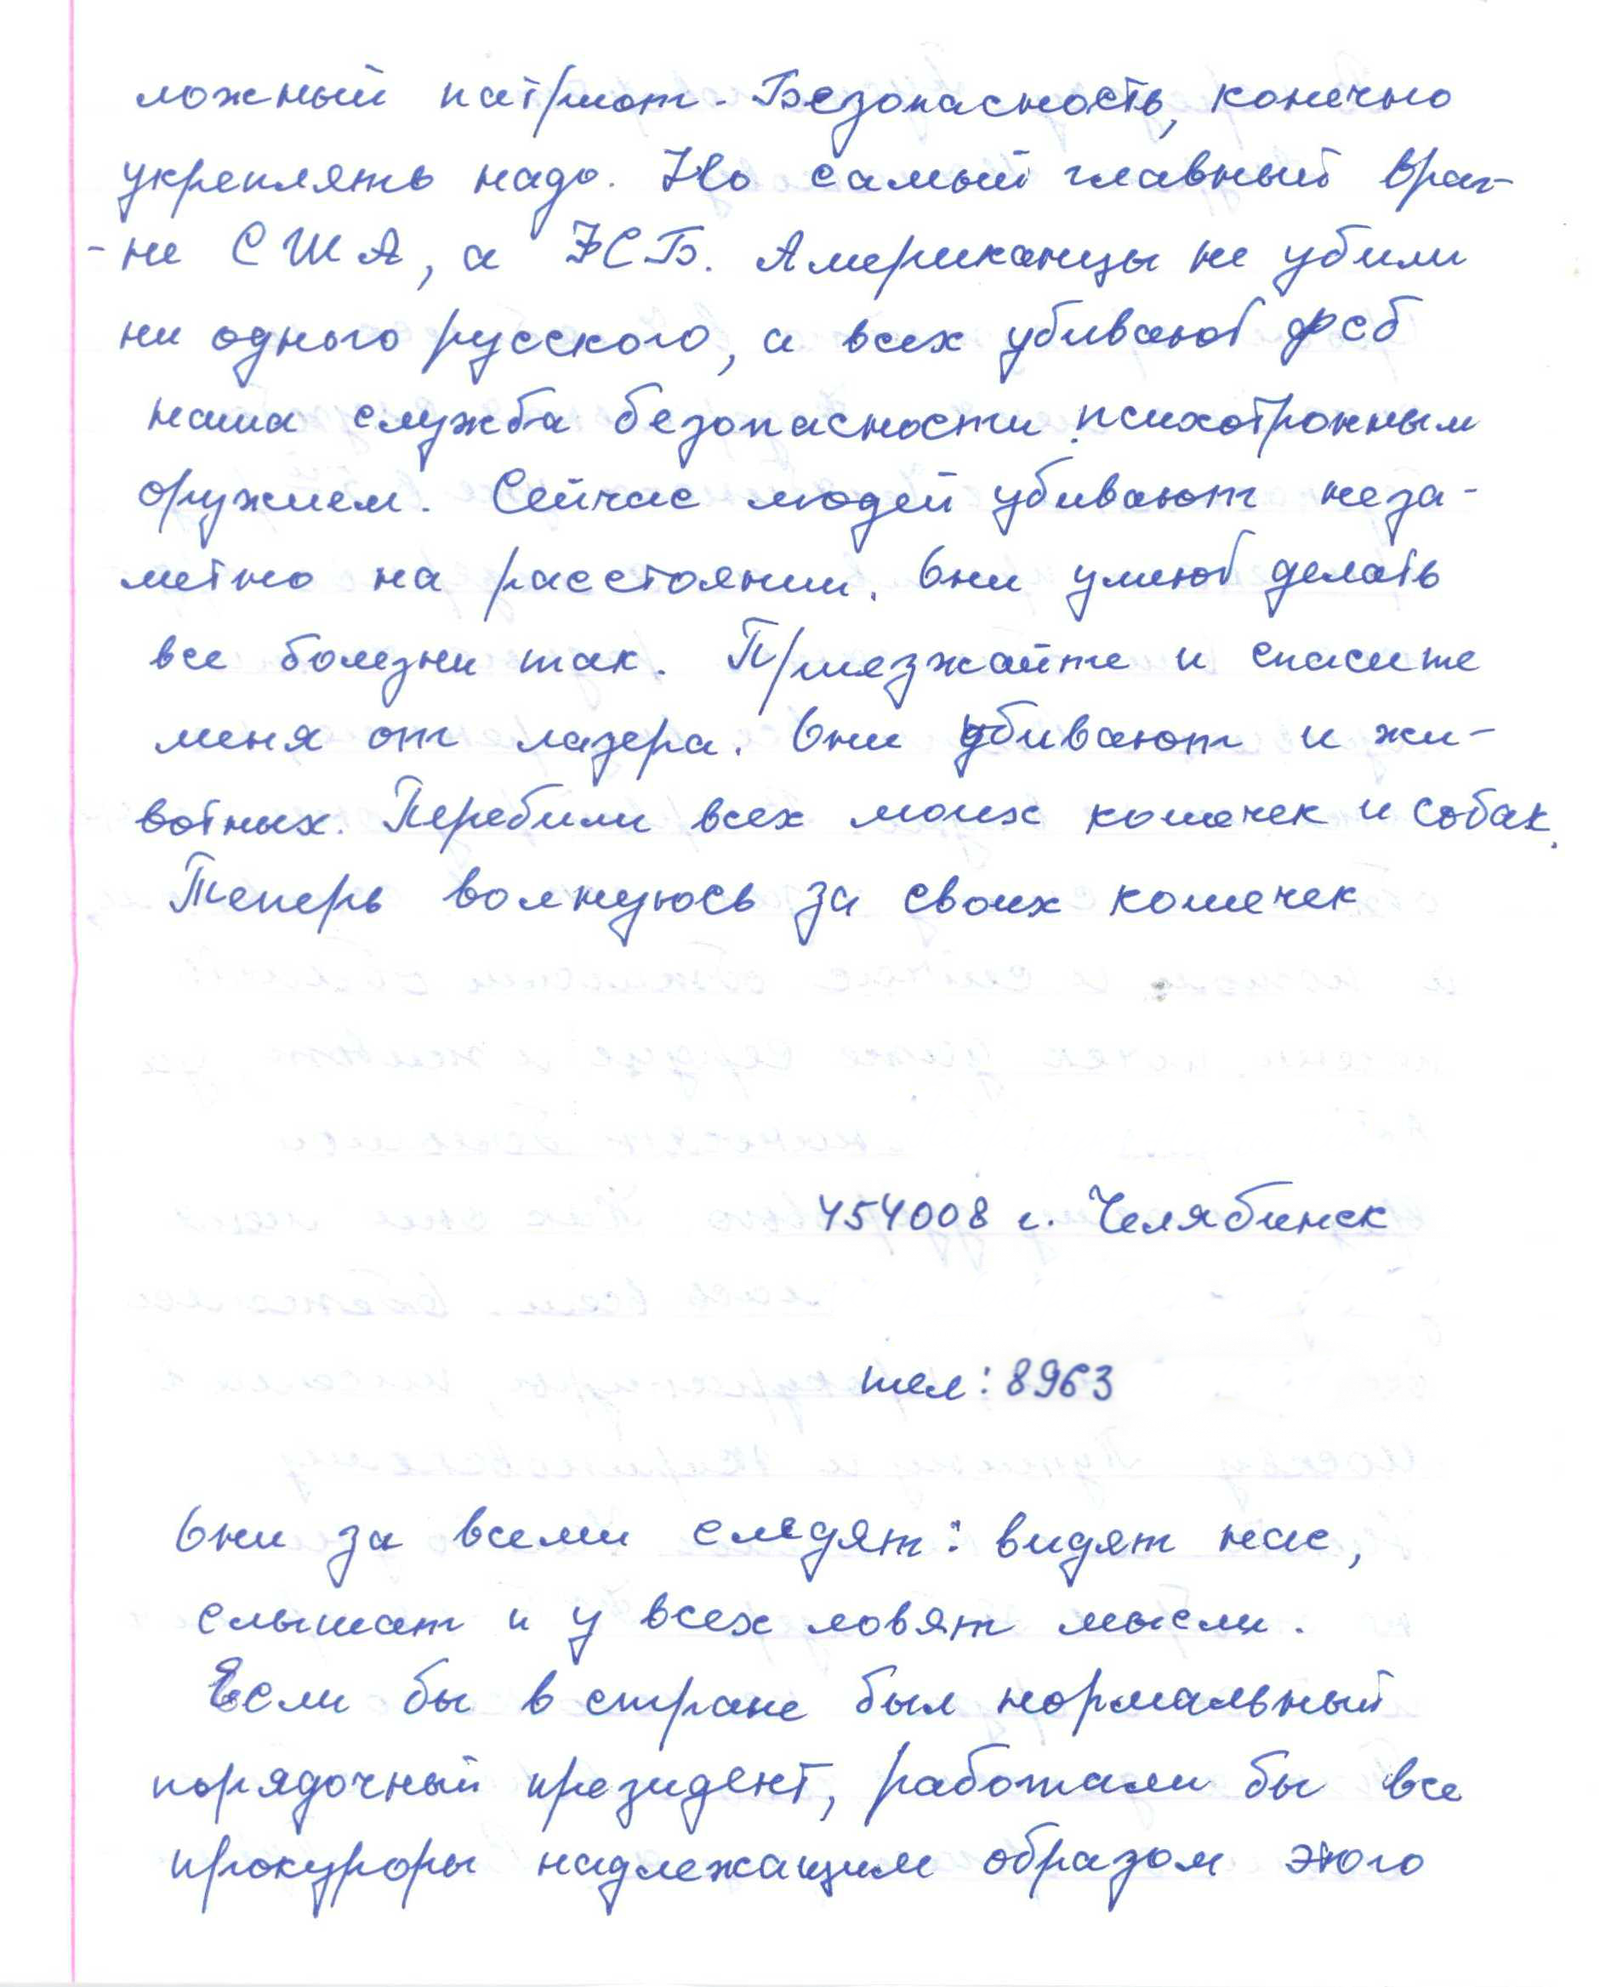 ложный патриот. Безопасность, конечно
укреплять надо. Но самый главный враг-
- не США, а ФСБ. Американцы не убили
ни одного русского, а всех убивают фсб
наша служба безопасности психотронным
оружием. Сейчас людей убивают неза-
метно на расстоянии. Они умеют делать
все болезни так. Приезжайте и спасите
меня от лазера. Они убивают и жи-
вотных. Перебили всех моих кошечек и собак.
Теперь волнуюсь за своих кошечек
454008 г. Челябинск
тел: 8963
Они за всеми следят: видят нас,
слышат и у всех ловят мысли.
Если бы в стране был нормальный
порядочный президент, работали бы все
прокуроры надлежащим образом этого